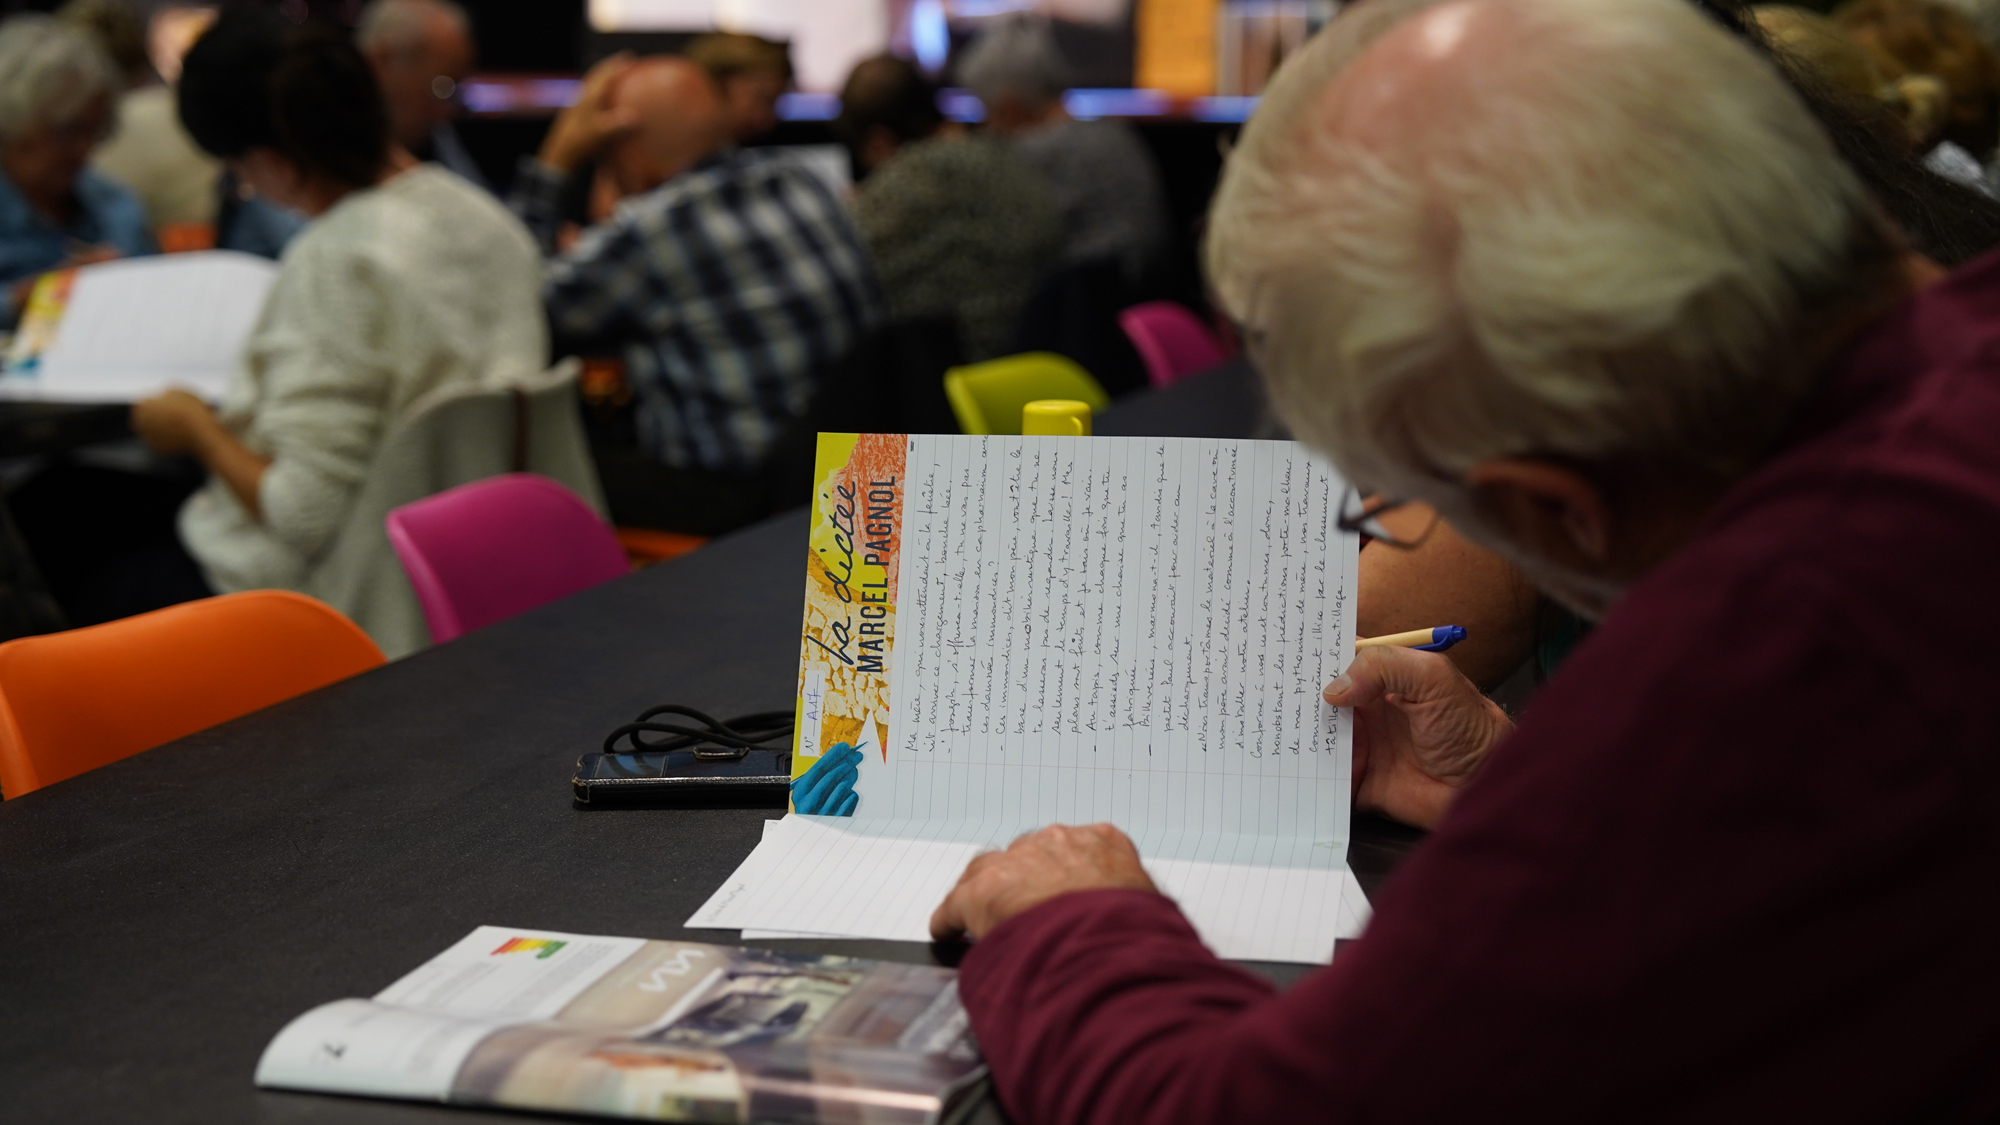 La dictée
MARCEL PAGNOL
N° A17
Ma mère, qui nous attendait à la fenêtre,
vit arriver ce chargement, bouche bée.
- " Joseph, s'offensa-t-elle, tu ne vas pas
transformer la maison en capharnaüm avec
ces damnées immondices ?
- Ces immondices, dit mon père, vont être la
base d'un mobilier rustique que tu ne
te lasseras pas de regarder. Laisse-nous
seulement le temps d'y travailler ! Mes
plans sont faits et je sais où je vais.
- Au tapis, comme chaque fois que tu
t'assieds sur une chaise que tu as
fabriquée.
- Billevesées, marmonna-t-il, tandis que le
petit Paul accourait pour aider au
déchargement.
« Nous transportâmes le matériel à la cave où
mon père avait décidé comme à l'accoutumée
d'installer notre atelier.
Conforme à nos us et coutumes, donc,
nonobstant les prédictions porte-malheur
de ma pythonisse de mère, nos travaux
commencèrent illico par le classement
de l'outillage.